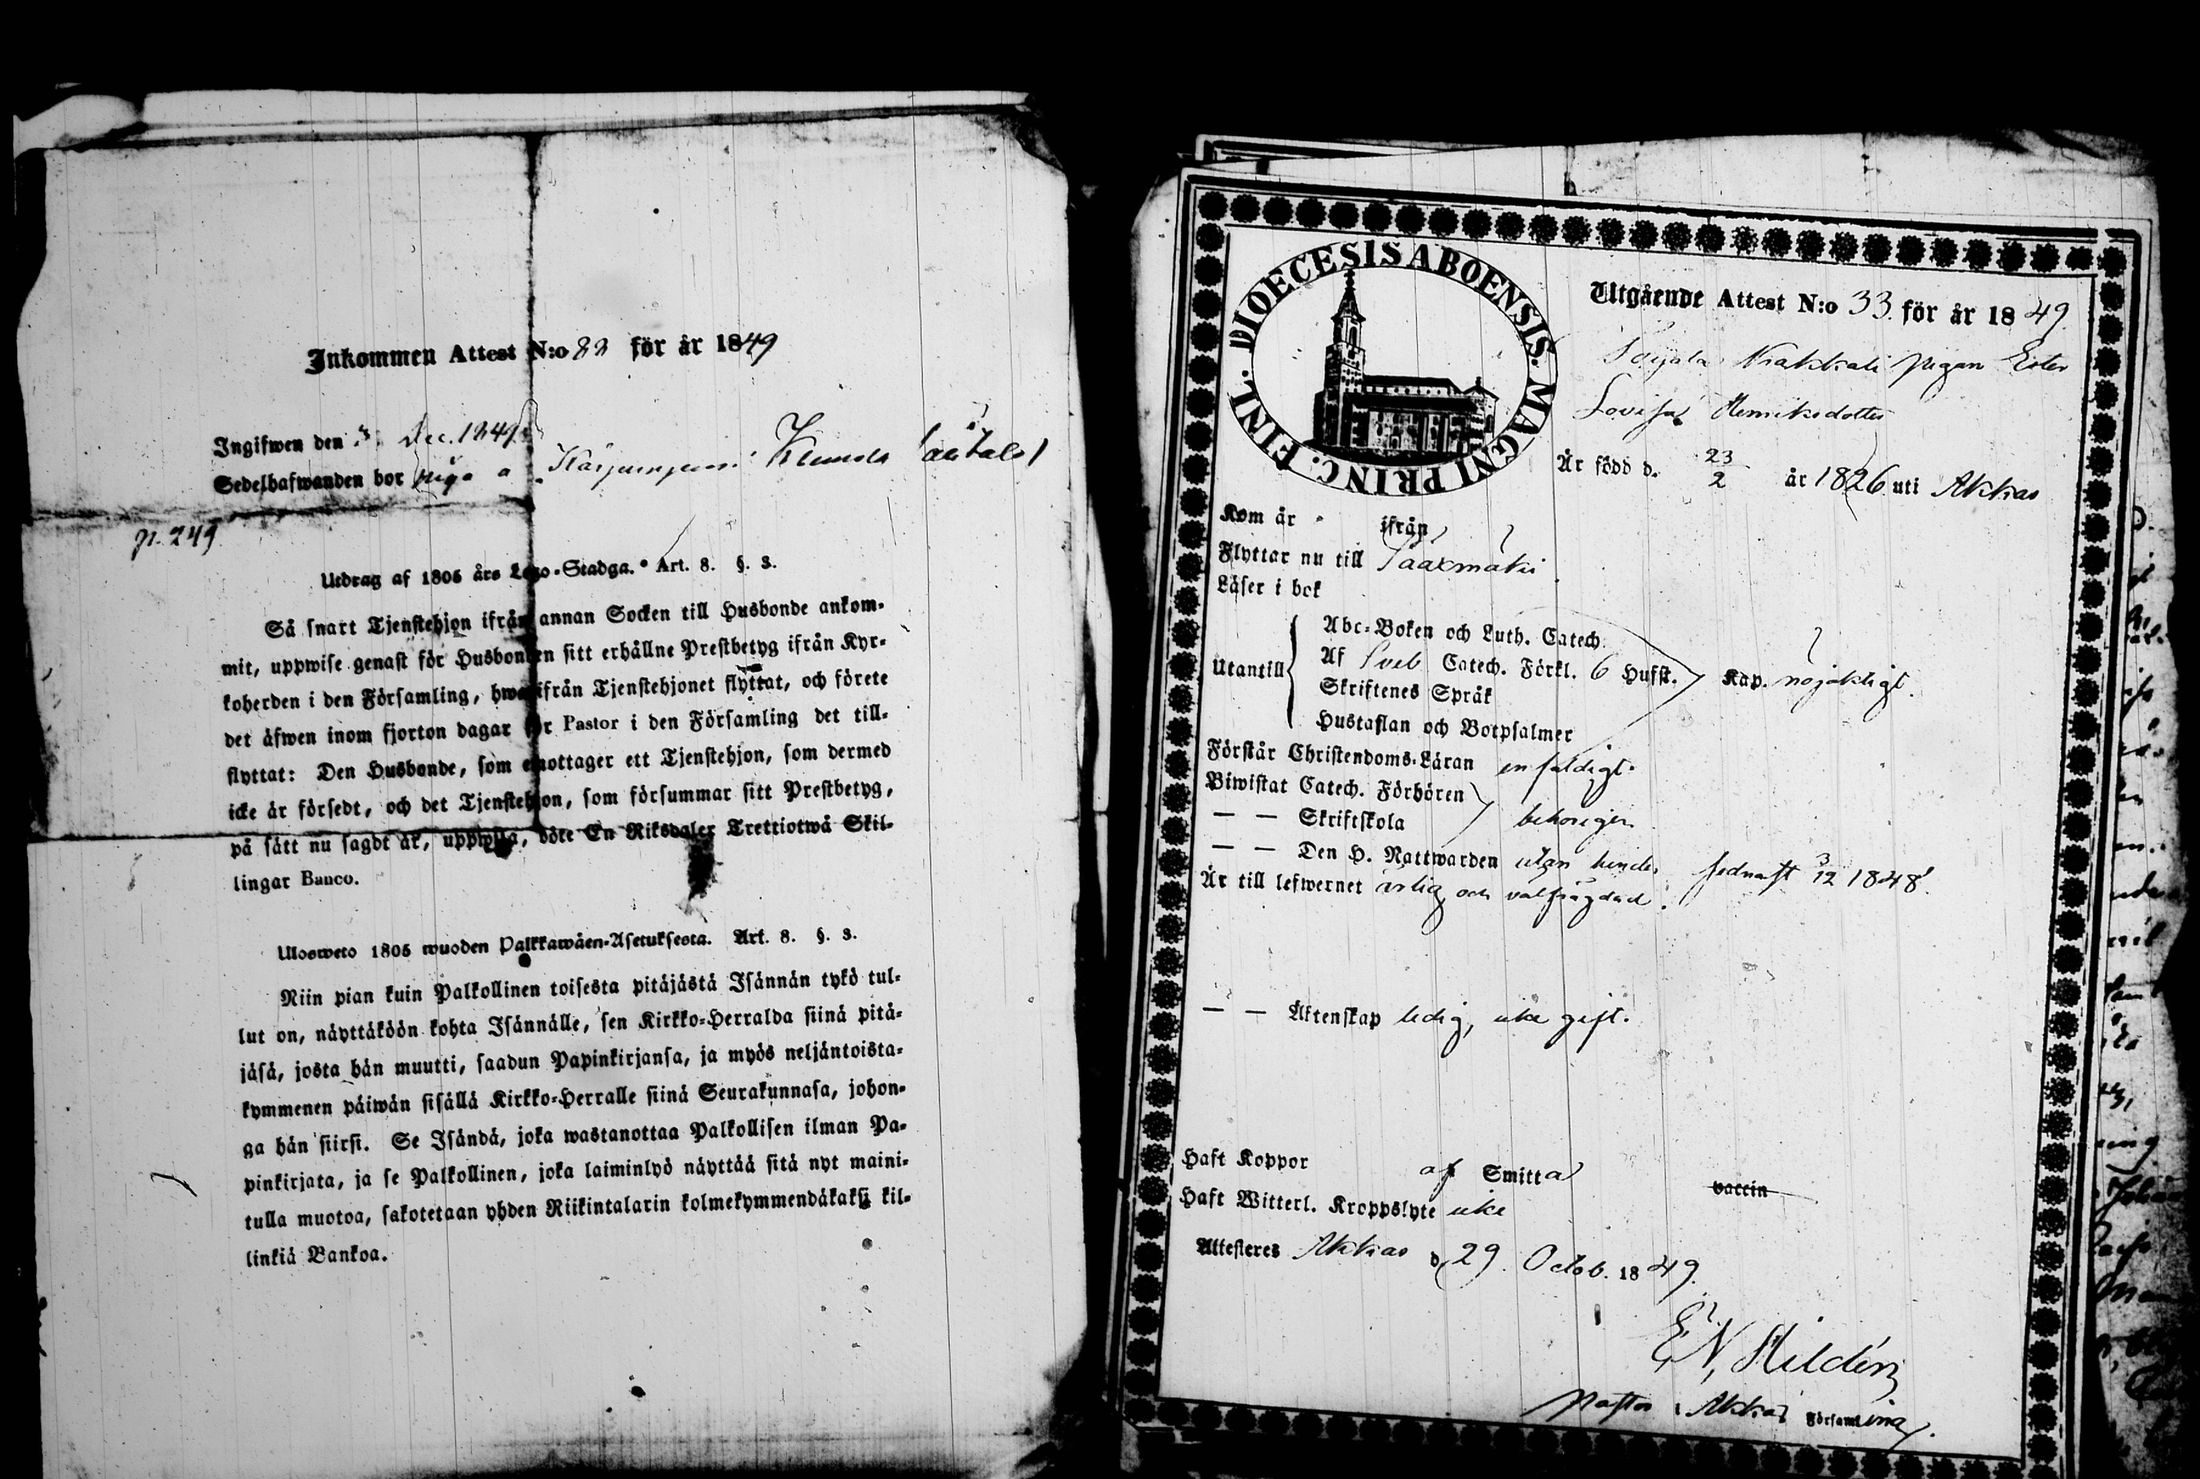 Inkommen Attest N:o 22 för år 1849
Ingifwen den Dec. 1849
Sedelhafwanden bor piga
p. 249
Utdrag af 1805 års Lego-Stadga. Art. 8. §. 3.
Så snart Tjenstehjon ifrån annan Socken till Husbonde ankom-
mit, uppwise genast för Husbonden sitt erhållne Prestbetyg ifrån Kyr-
koherden i den Församling, hwarifrån Tjenstehjonet flyttat, och förete
det äfwen inom fjorton dagar för Pastor i den Församling det till-
flyttat: Den Husbonde, som emottager ett Tjenstehjon, som dermed
icke är försedt, och det Tjenstehjon, som försummar sitt Prestbetyg,
på sätt nu sagdt är, uppwisa, böte En Riksdaler Trettiotwå Skil-
lingar Banco.
Ulosweto 1805 wuoden Palkkawäen-Asetuksesta. Art. 8. §. 3.
Niin pian kuin Palkollinen toisesta pitäjästä Isännän tykö tul-
lut on, näyttäköön kohta Isännälle, sen Kirkko-Herralda siinä pitä-
jäsä, josta hän muutti, saadun Papinkirjansa, ja myös neljäntoista-
kymmenen päiwän sisällä Kirkko-Herralle siinä Seurakunnasa, johon-
ga hän siirsi. Se Isändä, joka wastanottaa Palkollisen ilman Pa-
pinkirjata, ja se Palkollinen, joka laiminlyö näyttää sitä nyt maini-
tulla muotoa, sakotetaan yhden Riikintalarin kolmekymmendäkaksi kil-
linkiä Bankoa.
DIOECESIS ABOENSIS. MAGNI PRINC. FINL.
Utgående Attest N:o 33 för år 1849.
pigan Ester
Lovisa Henriksdotter
Är född d. 23/2 år 1826 uti Akkas
Kom år ifrån
Flyttar nu till Sääxmäki
Läser i bok
Utantill
Abc-Boken och Luth. Catech.
Af Sveb. Catech. Förkl. 6 Hufst. Kap. nöjaktigt.
Skriftenes Språk
Hustaflan och Botpsalmer
Förstår Christendoms-Läran enfaldigt.
Biwistat Catech. Förhören
— — Skriftskola behörigen
— — Den H. Nattwarden utan hinder sednast 3/12 1848.
Är till lefwernet ärlig och välfrägdad.
— — Äktenskap ledig, icke gift.
Haft Koppor af Smitta vaccin
Haft Witterl. Kroppslyte icke
Attesteres Akkas d. 29 Octob. 1849.
E. N. Hildén
Pastor i Akkas Församling.